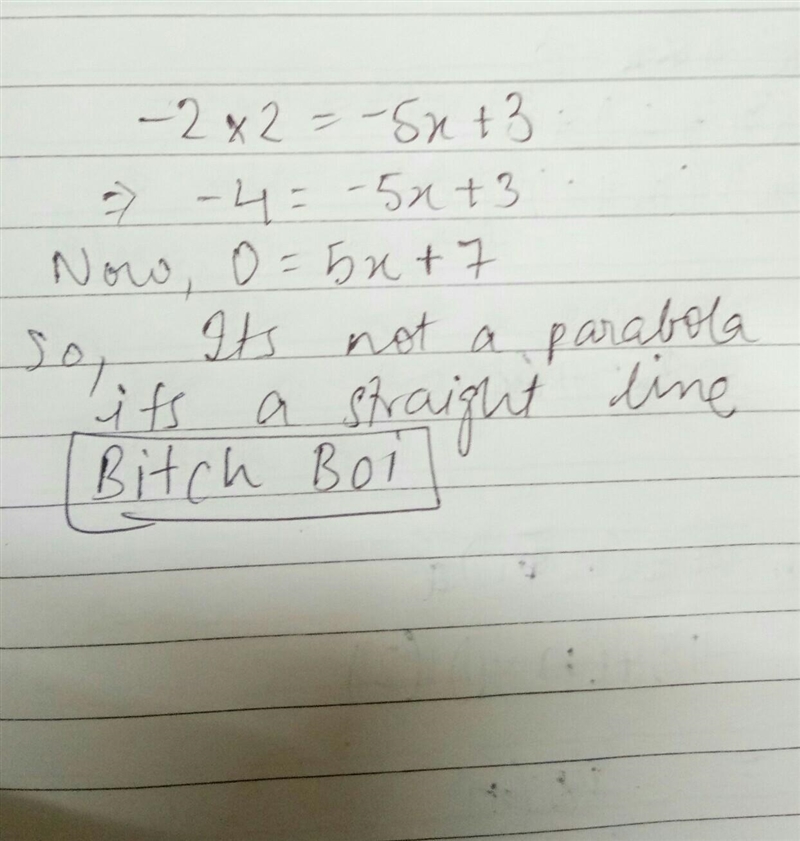 -2 × 2 = -5x + 3
⇒ -4 = -5x + 3
Now, 0 = 5x + 7
So, Its not a parabola
its a straight line
Bitch Boi